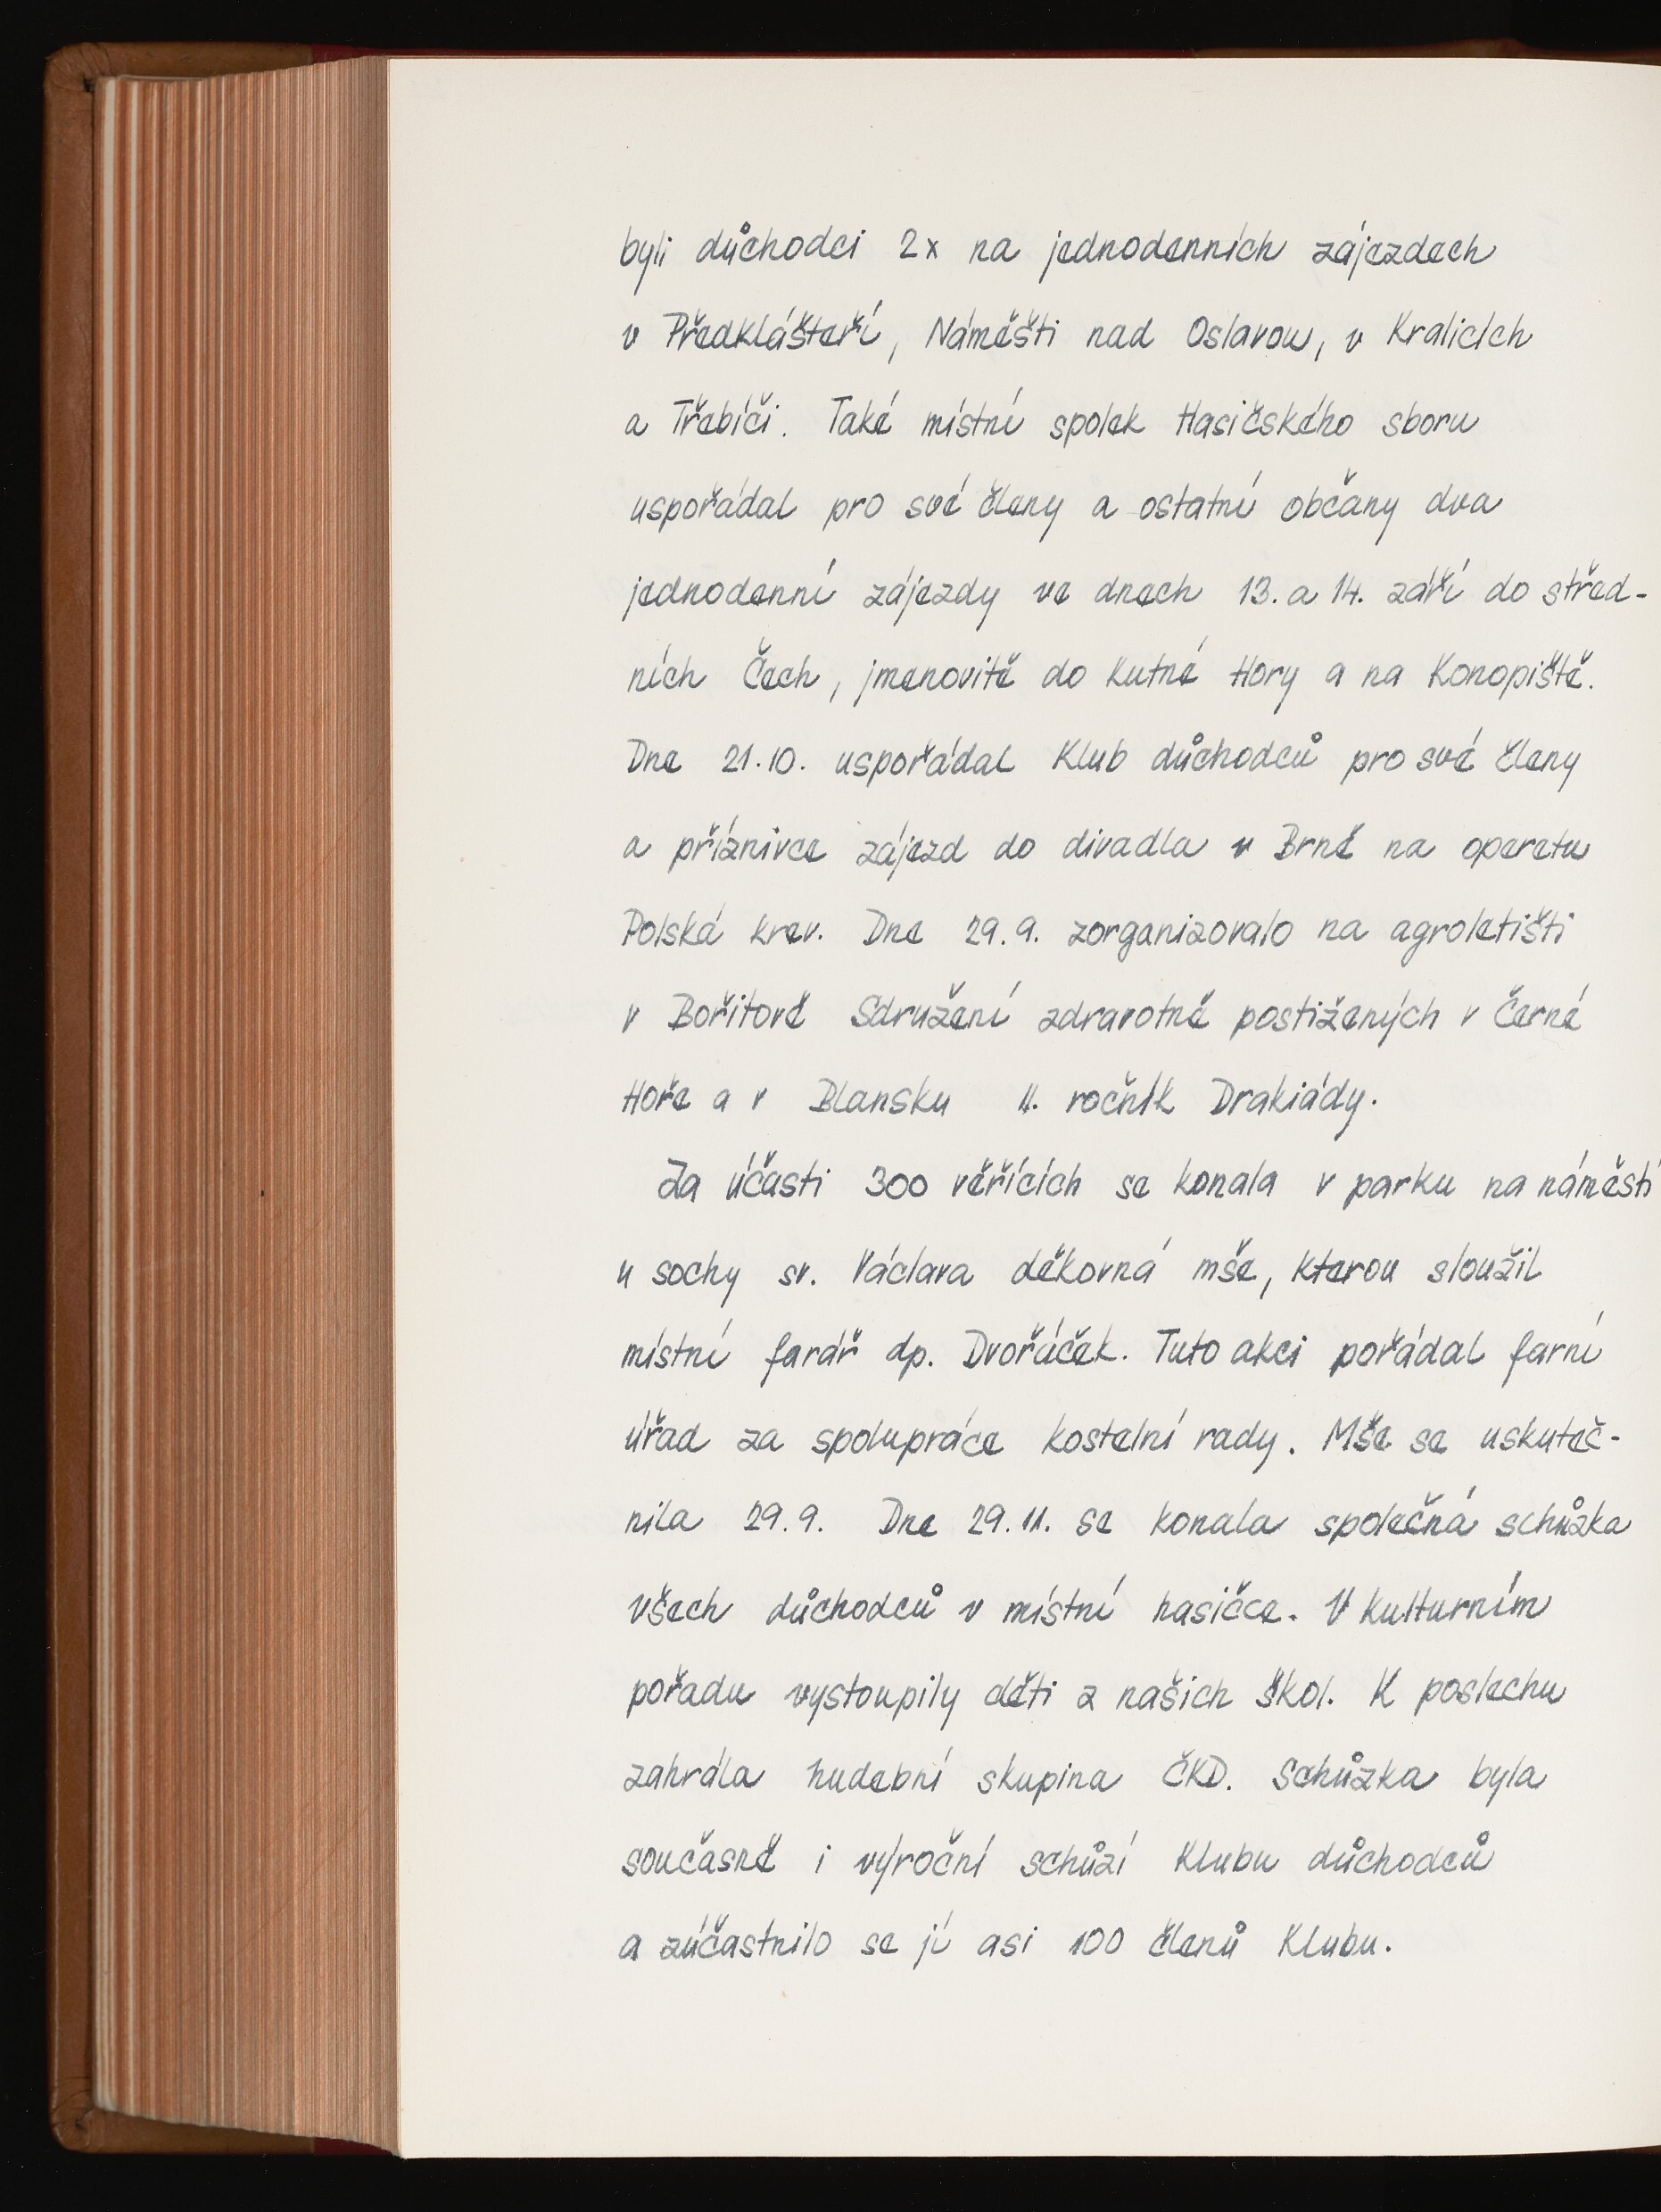 byli důchodci 2x na jednodenních zájezdech
v Předklášteří, Náměšti nad Oslavou, v Kralicích
a Třebíči. Také místní spolek Hasičského sboru
uspořádal pro své členy a ostatní občany dva
jednodenní zájezdy ve dnech 13. a 14. září do střed-
ních Čech, jmenovitě do Kutné Hory a na Konopiště.
Dne 21.10. uspořádal Klub důchodců pro své členy
a příznivce zájezd do divadla v Brně na operetu
Polská krev. Dne 29.9. zorganizovalo na agroletišti
v Bořitově Sdružení zdravotně postižených v Černé
Hoře a v Blansku II. ročník Drakiády.
Za účasti 300 věřících se konala v parku na náměstí
u sochy sv. Václava děkovná mše, kterou sloužil
místní farář dp. Dvořáček. Tuto akci pořádal farní
úřad za spolupráce kostelní rady. Mše se uskuteč-
nila 29.9. Dne 29.11. se konala společná schůzka
všech důchodců v místní hasičce. V kulturním
pořadu vystoupily děti z našich škol. K poslechu
zahrála hudební skupina ČKD. Schůzka byla
současně i výroční schůzí Klubu důchodců
a zúčastnilo se jí asi 100 členů Klubu.